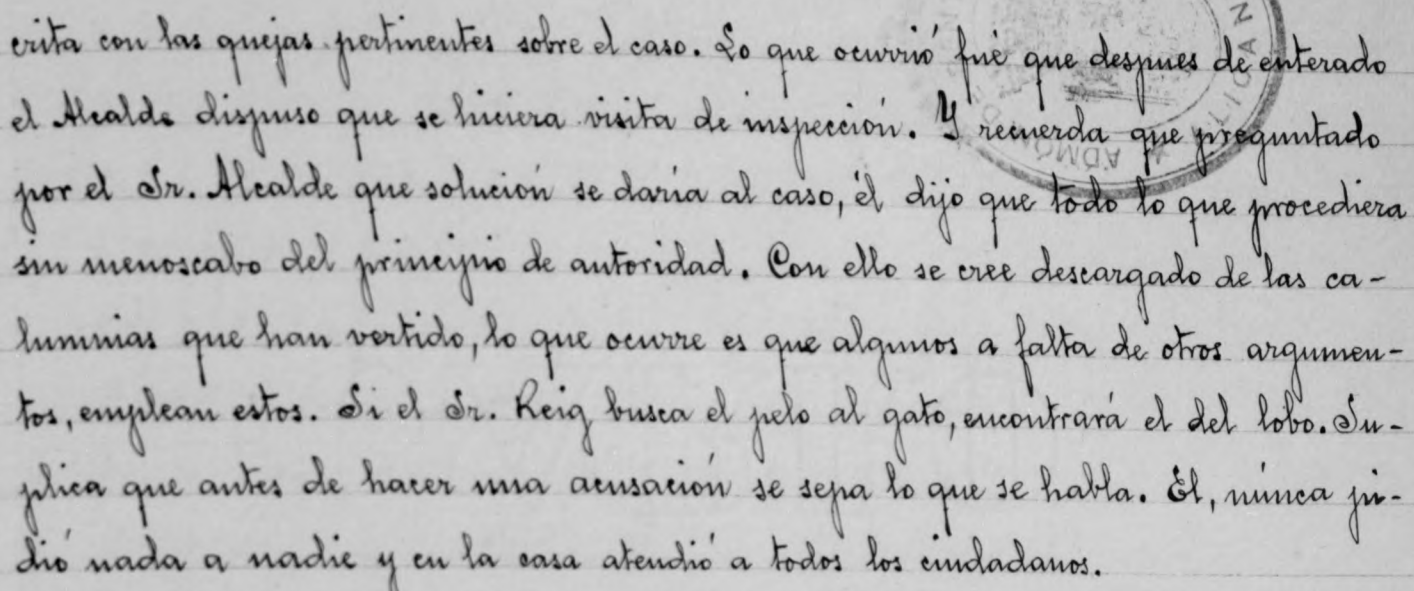 crita con las quejas pertinentes sobre el caso. Lo que ocurrió fué que despues de enterado
el Alcalde dispuso que se hiciera visita de inspección. Y recuerda que preguntado
por el Sr. Alcalde que solución se daría al caso, él dijo que todo lo que procediera
sin menoscabo del principio de autoridad. Con ello se cree descargado de las ca-
lumnias que han vertido, lo que ocurre es que algunos a falta de otros argumen-
tos, emplean estos. Si el Sr. Reig busca el pelo al gato, encontrará el del lobo. Su-
plica que antes de hacer una acusación se sepa lo que se habla. Él, núnca pi-
dió nada a nadie y en la casa atendió a todos los ciudadanos.
ADMÓN